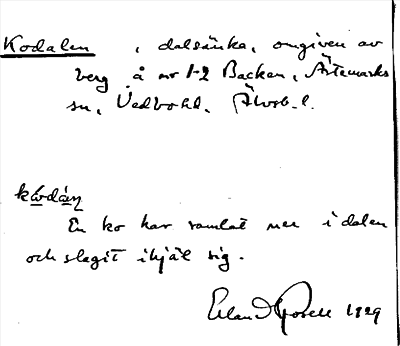 Kodalen, dalsänka, omgiven av
berg å nr 1-2 Backen, Ärtemarks
sn, Vedbohd. Älvsb. l.
kódán
En ko har ramlat ner i dalen
och slagit ihjäl sig.
Erland Rosell 1929